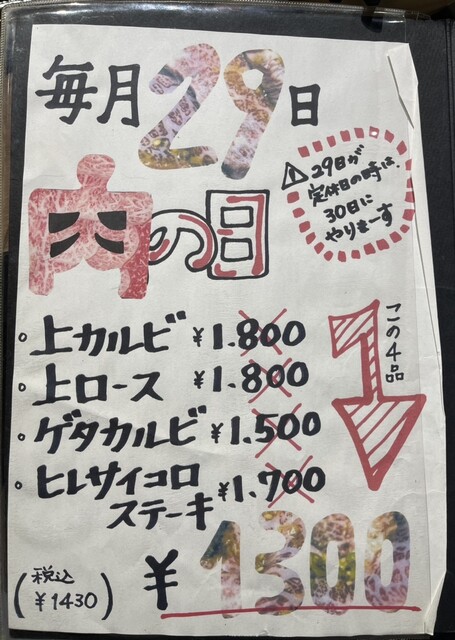 毎月29日
肉の日
⚠ 29日が
定休日の時は、
30日に
やりまーす
この4品
。上カルビ ¥1.800
。上ロース ¥1.800
。ゲタカルビ ¥1.500
。ヒレサイコロ
ステーキ ¥1.700
¥1300
(税込
¥1430)